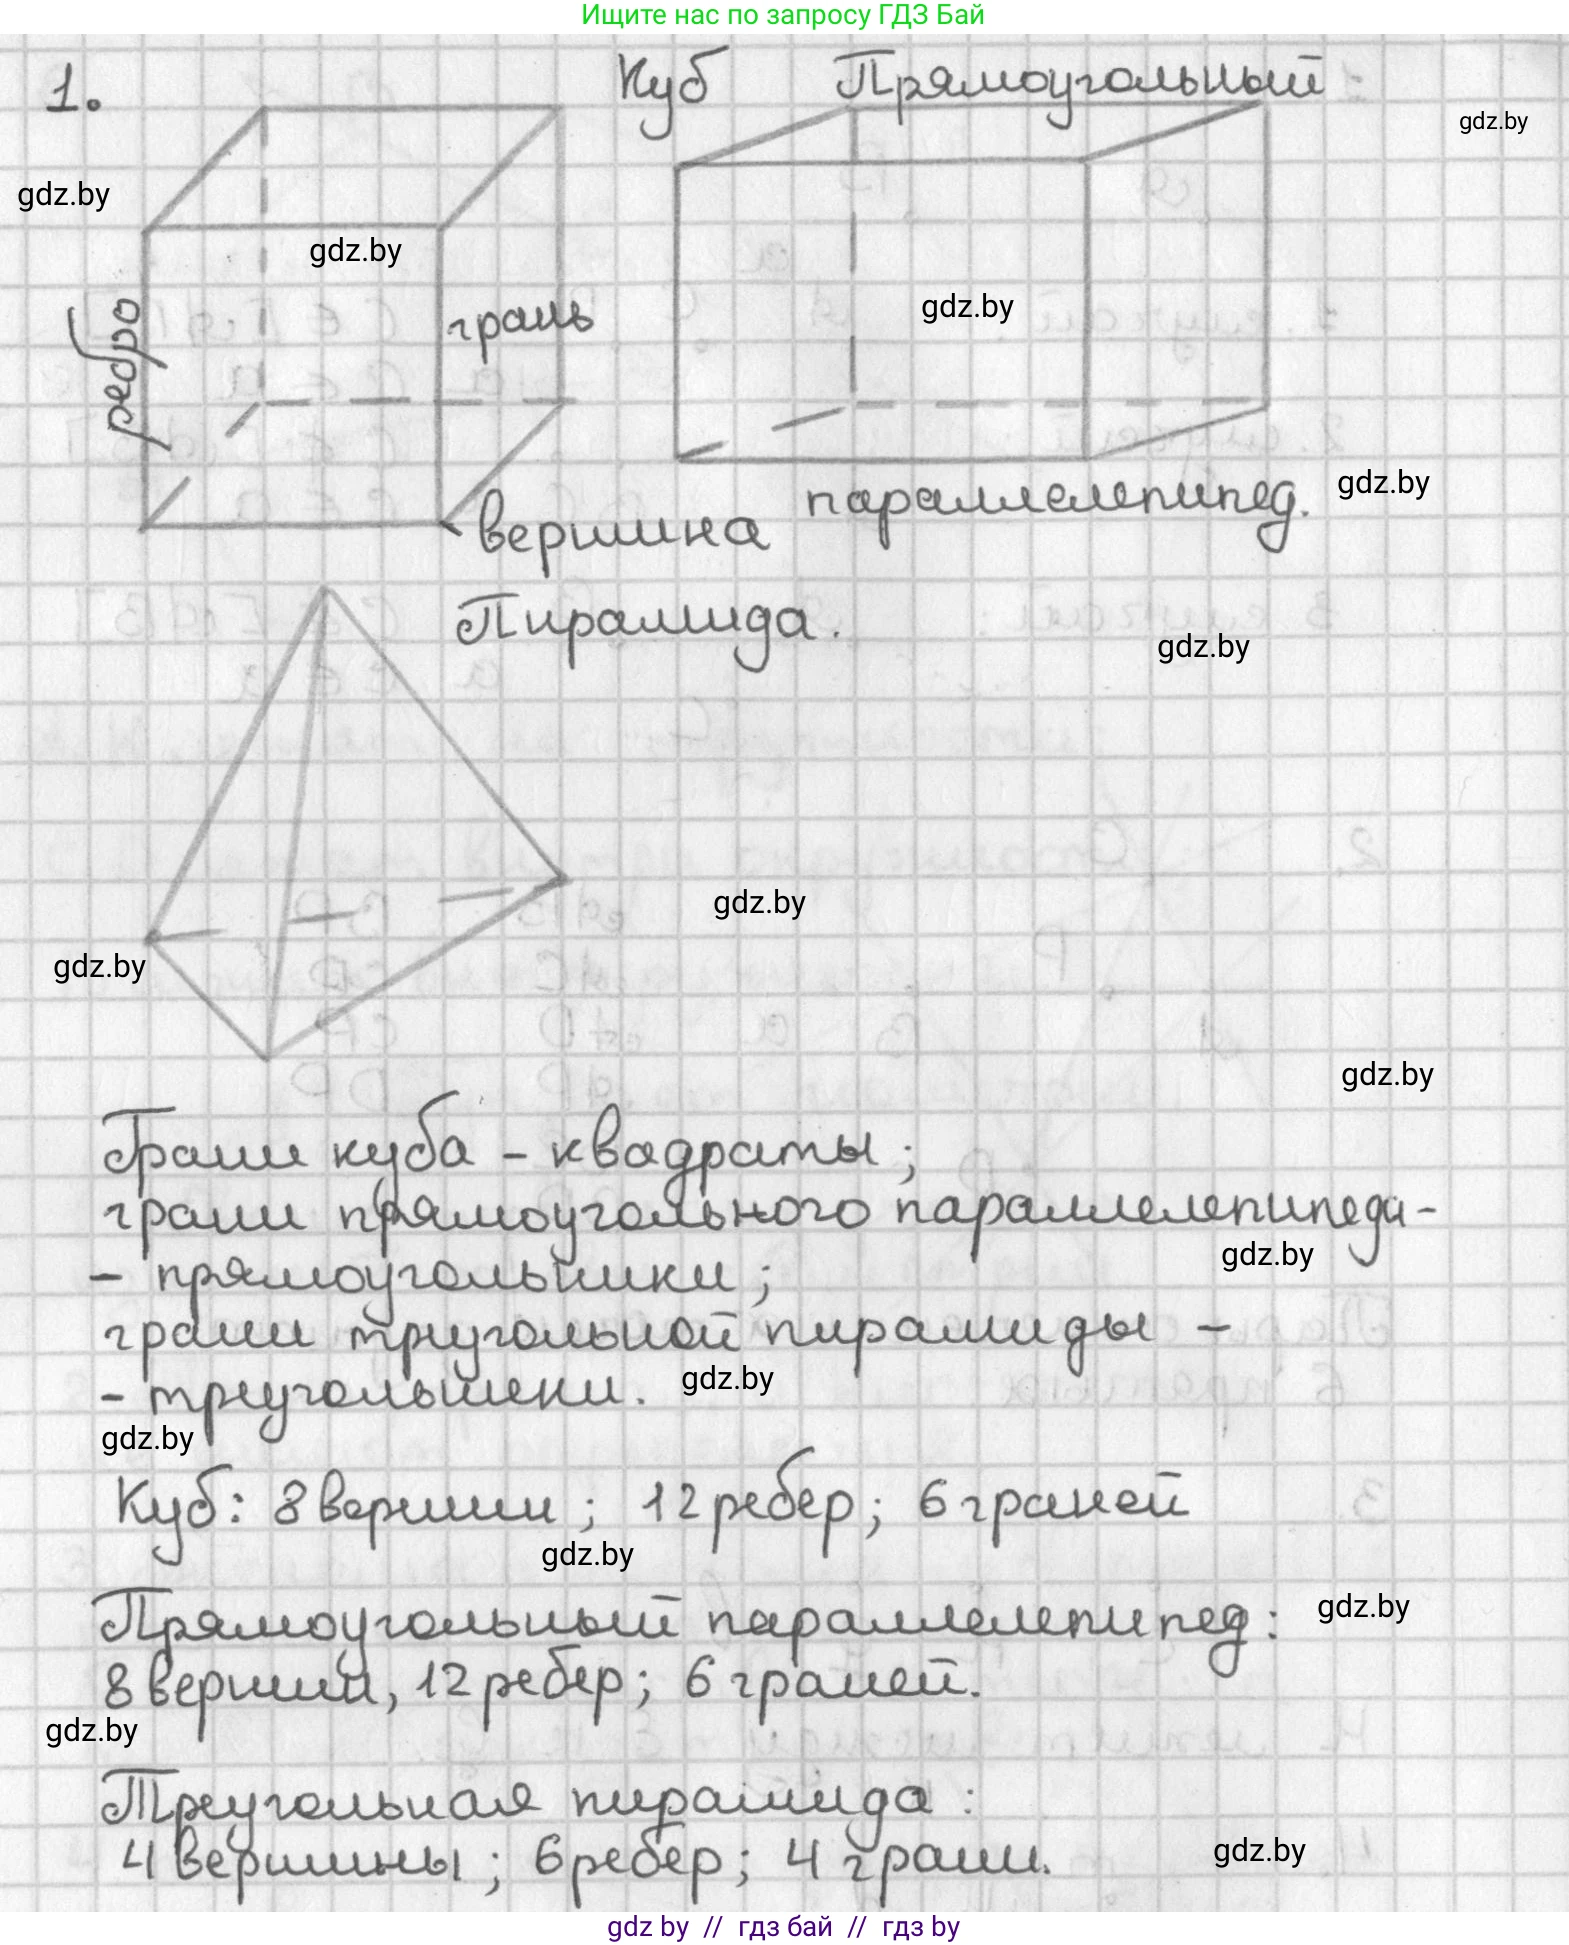 Ищите нас по запросу ГДЗ Бай
1.
Куб
Прямоугольный
gdz.by
gdz.by
gdz.by
ребро
грань
gdz.by
вершина
параллелепипед.
gdz.by
Пирамида.
gdz.by
gdz.by
gdz.by
gdz.by
Грани куба - квадраты;
грани прямоугольного параллелепипеда-
gdz.by
- прямоугольники;
грани треугольной пирамиды -
- треугольники.
gdz.by
gdz.by
Куб: 8 вершин; 12 ребер; 6 граней
gdz.by
Прямоугольный параллелепипед:
gdz.by
8 вершин, 12 ребер; 6 граней.
gdz.by
Треугольная пирамида:
4 вершины; 6 ребер; 4 грани.
gdz.by
gdz by // гдз бай // гдз by